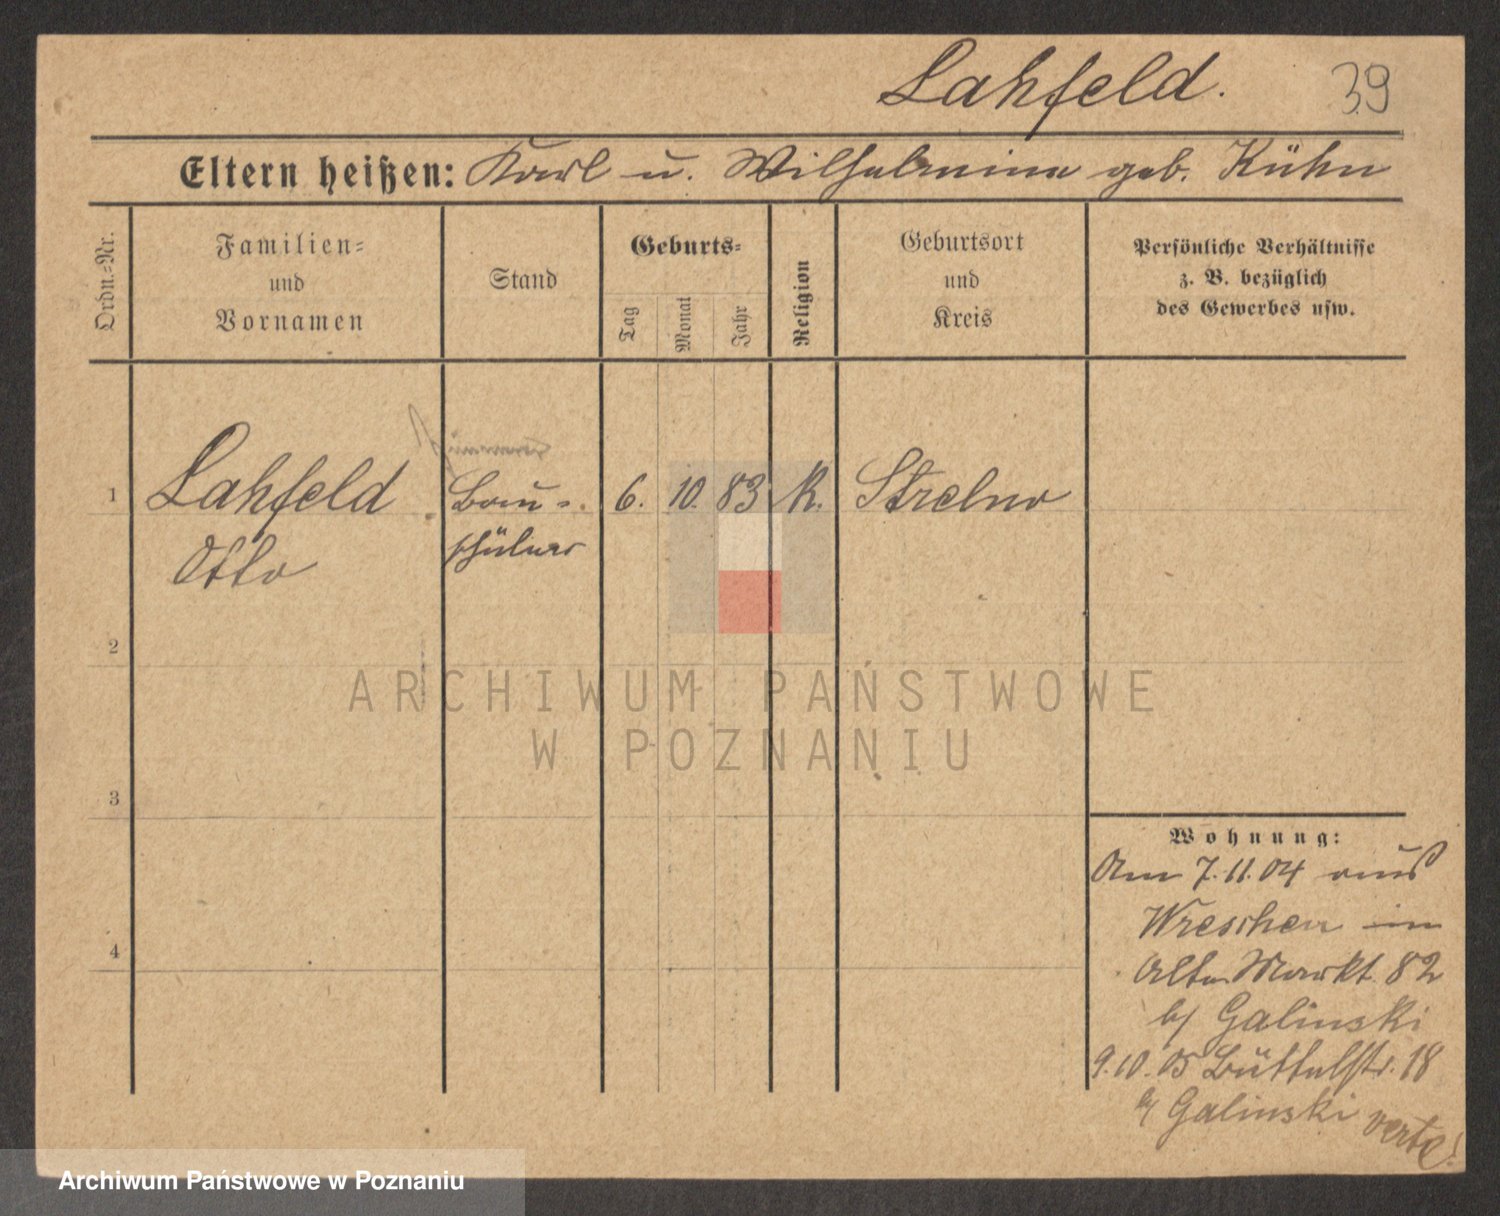 Lahfeld.
39
Eltern heißen: Karl u. Wilhelmine geb. Kühn
Ordn.=Nr.
Familien=
und
Vornamen
Stand
Geburts=
Tag
Monat
Jahr
Religion
Geburtsort
und
Kreis
Persönliche Verhältnisse
z. B. bezüglich
des Gewerbes usw.
1
Lahfeld
Otto
Bau=
schüler
6. 10. 83
K.
Strelno
2
3
4
Wohnung:
Am 7.11.04 aus
Wreschen in
Alter Markt 82
b/ Galinski
9.10.05 Büttelstr. 18
b/ Galinski verte!
ARCHIWUM PAŃSTWOWE
W POZNANIU
Archiwum Państwowe w Poznaniu